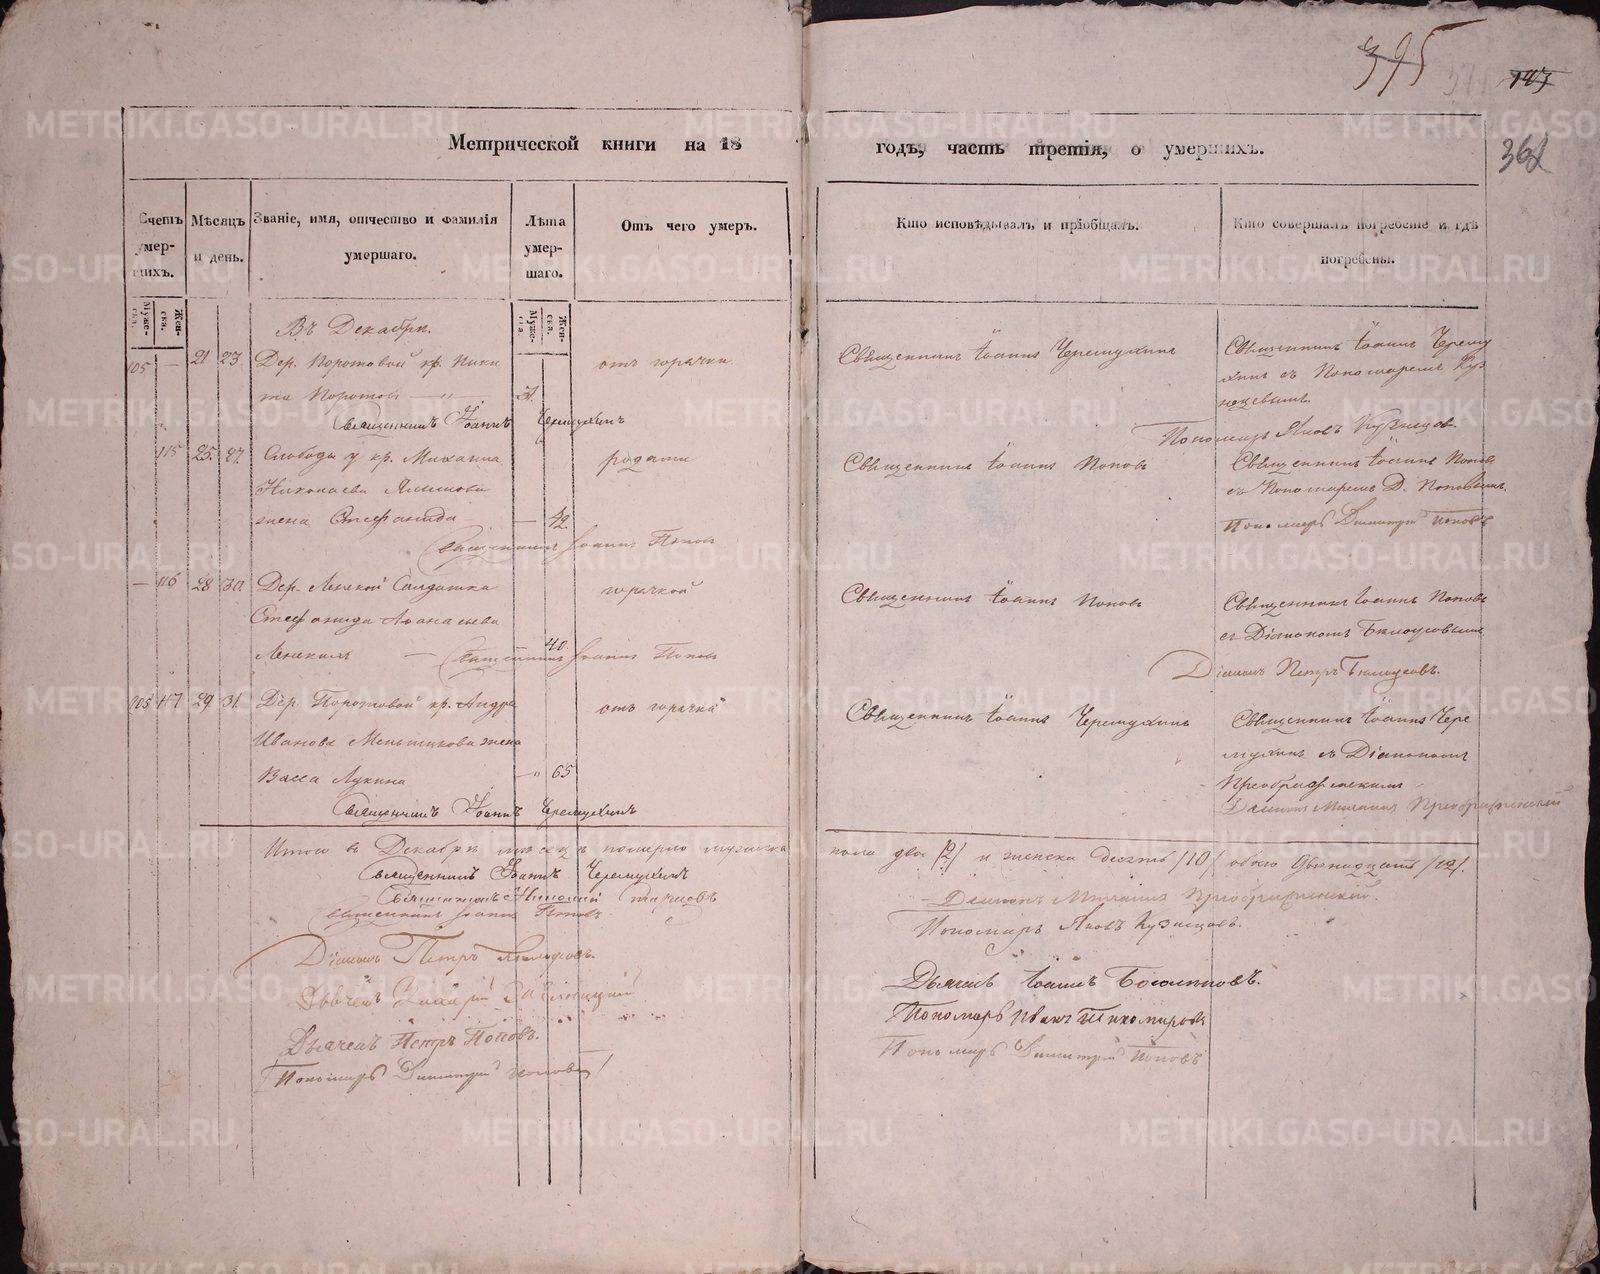 395
143
368
Метрической книги на 18
годъ, часть третія, о умершихъ.
Счетъ умер-шихъ.
Мѣсяцъ и день.
Званіе, имя, отчество и фамилія умершаго.
Лѣта умер-шаго.
Отъ чего умеръ.
Кто исповѣдывалъ и пріобщалъ.
Кто совершалъ погребеніе и гдѣ погребены.
Муже-ска.
Жен-ска.
Муже-ска.
Жен-ска.
Въ Декабрѣ.
105 — 21 23 Дер. Поротовой кр. Ники
та Поротовъ —
отъ горячки
Священникъ Іоаннъ Черемухинъ
Священникъ Іоаннъ Черему
хинъ съ Пономаремъ Куз
нецовымъ.
Священникъ Іоаннъ Черемухинъ
Пономарь Яковъ Кузнецовъ.
115 25. 27. Слободы у кр. Михаила
Николаева
жена Стефанида — 42.
родами
Священникъ Іоаннъ Поповъ
Священникъ Іоаннъ Поповъ
съ Пономаремъ Д. Поповымъ.
Пономарь Димитрій Поповъ
Священникъ Іоаннъ Поповъ
— 116 28 30. Дер. Ленской Солдатка
Стефанида Афанасьева
— 40.
горячкой
Священникъ Іоаннъ Поповъ
Священникъ Іоаннъ Поповъ
съ Діакономъ Бѣлоусовымъ
Священникъ Іоаннъ Поповъ
Діаконъ Петръ Бѣлоусовъ.
105 117 29 31. Дер. Поротовой кр. Андре
Иванова Меньшикова жена
Васса Лукина — „ 65
отъ горячки
Священникъ Іоаннъ Черемухинъ
Священникъ Іоаннъ Чере
мухинъ съ Діакономъ
Преображенскимъ
Священникъ Іоаннъ Черемухинъ
Діаконъ Михаилъ Преображенскій
Итого въ Декабрѣ мѣсяцѣ померло мужеска
пола два /2/ и женска десять /10/ обоего двенадцать /12/.
Священникъ Іоаннъ Черемухинъ
Священникъ Николай
Священникъ Іоаннъ Поповъ
Діаконъ Петръ Бѣлоусовъ.
Дьячекъ
Дьячекъ Петръ Поповъ.
Пономарь Димитрій Поповъ
Діаконъ Михаилъ Преображенскій.
Пономарь Яковъ Кузнецовъ.
Дьячекъ Іоаннъ
Пономарь Иванъ Тихомировъ
Пономарь Димитрій Поповъ
METRIKI.GASO-URAL.RU